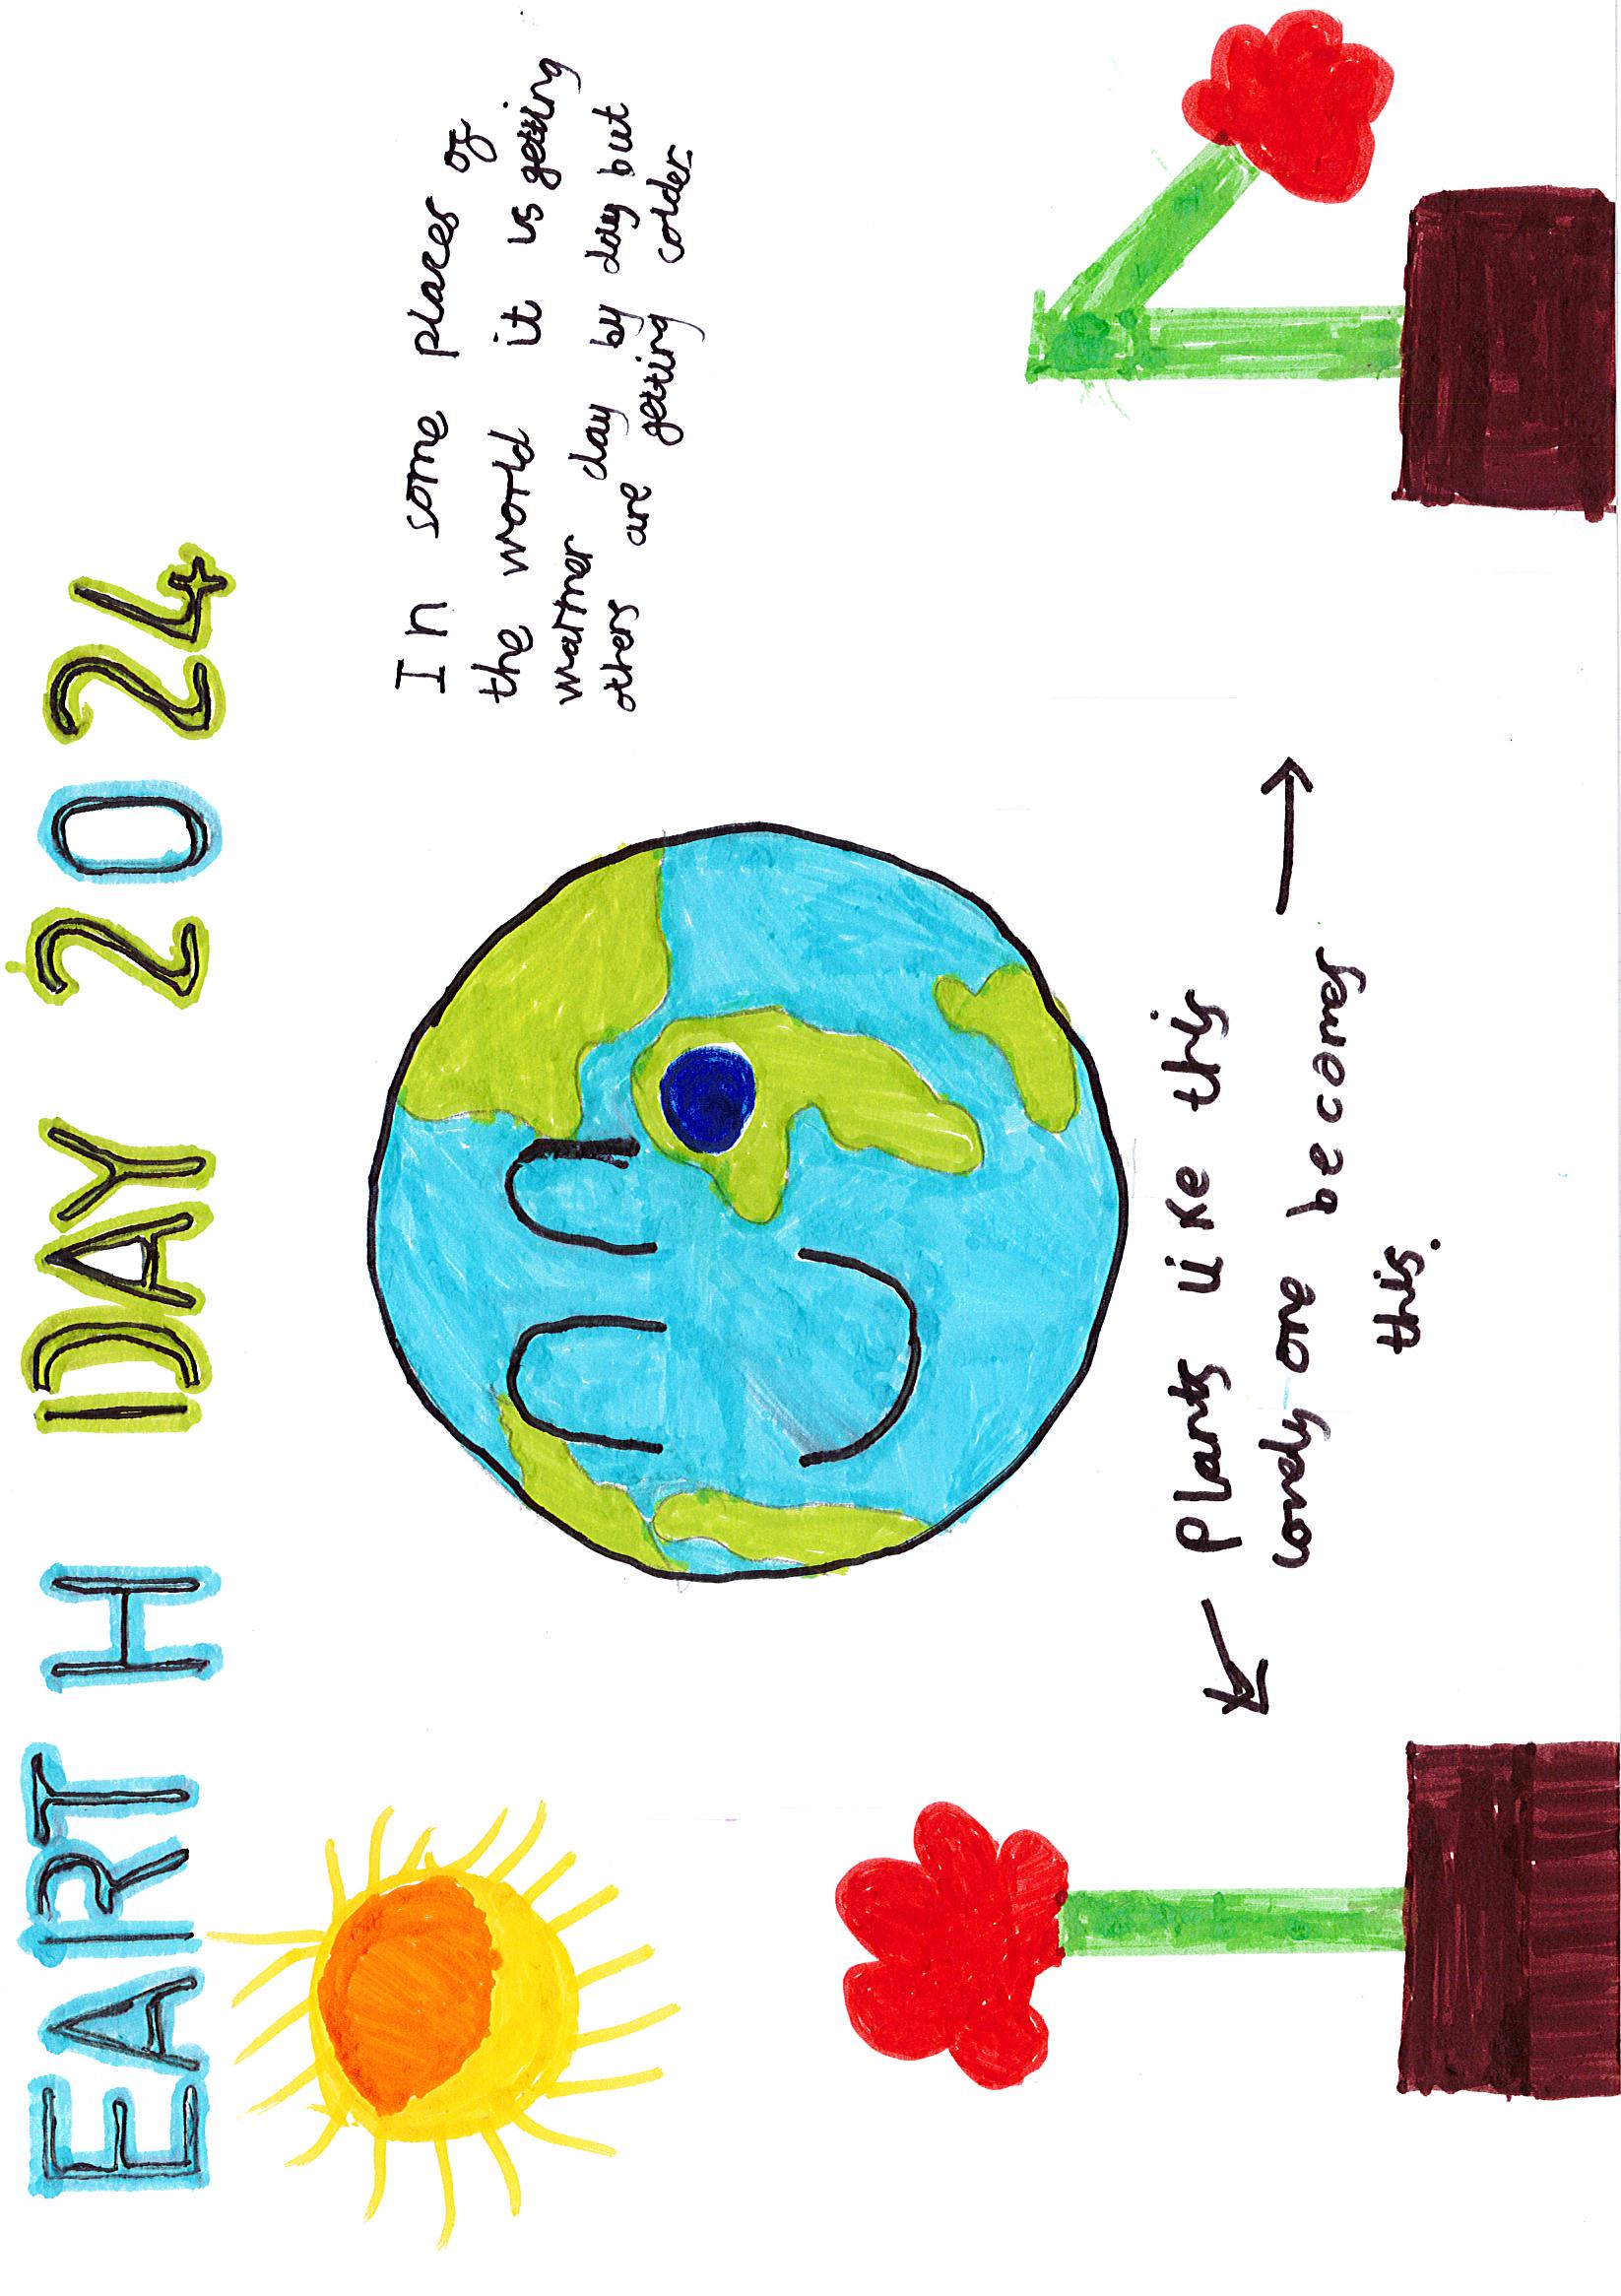 EARTH DAY 2024
In some places of
the world it is getting
warmer day by day but
others are getting colder.
Plants like this
lonely one becomes
this.